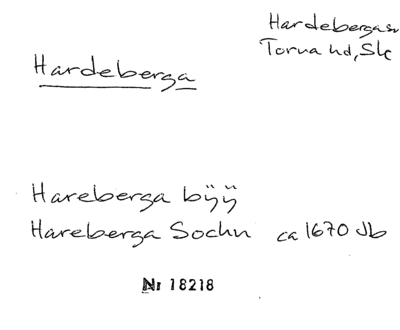 Hardebergasn
Torna hd, Sk
Hardeberga
Hareberga bÿÿ
Hareberga Sochn ca 1670 Jb
Nr 18218